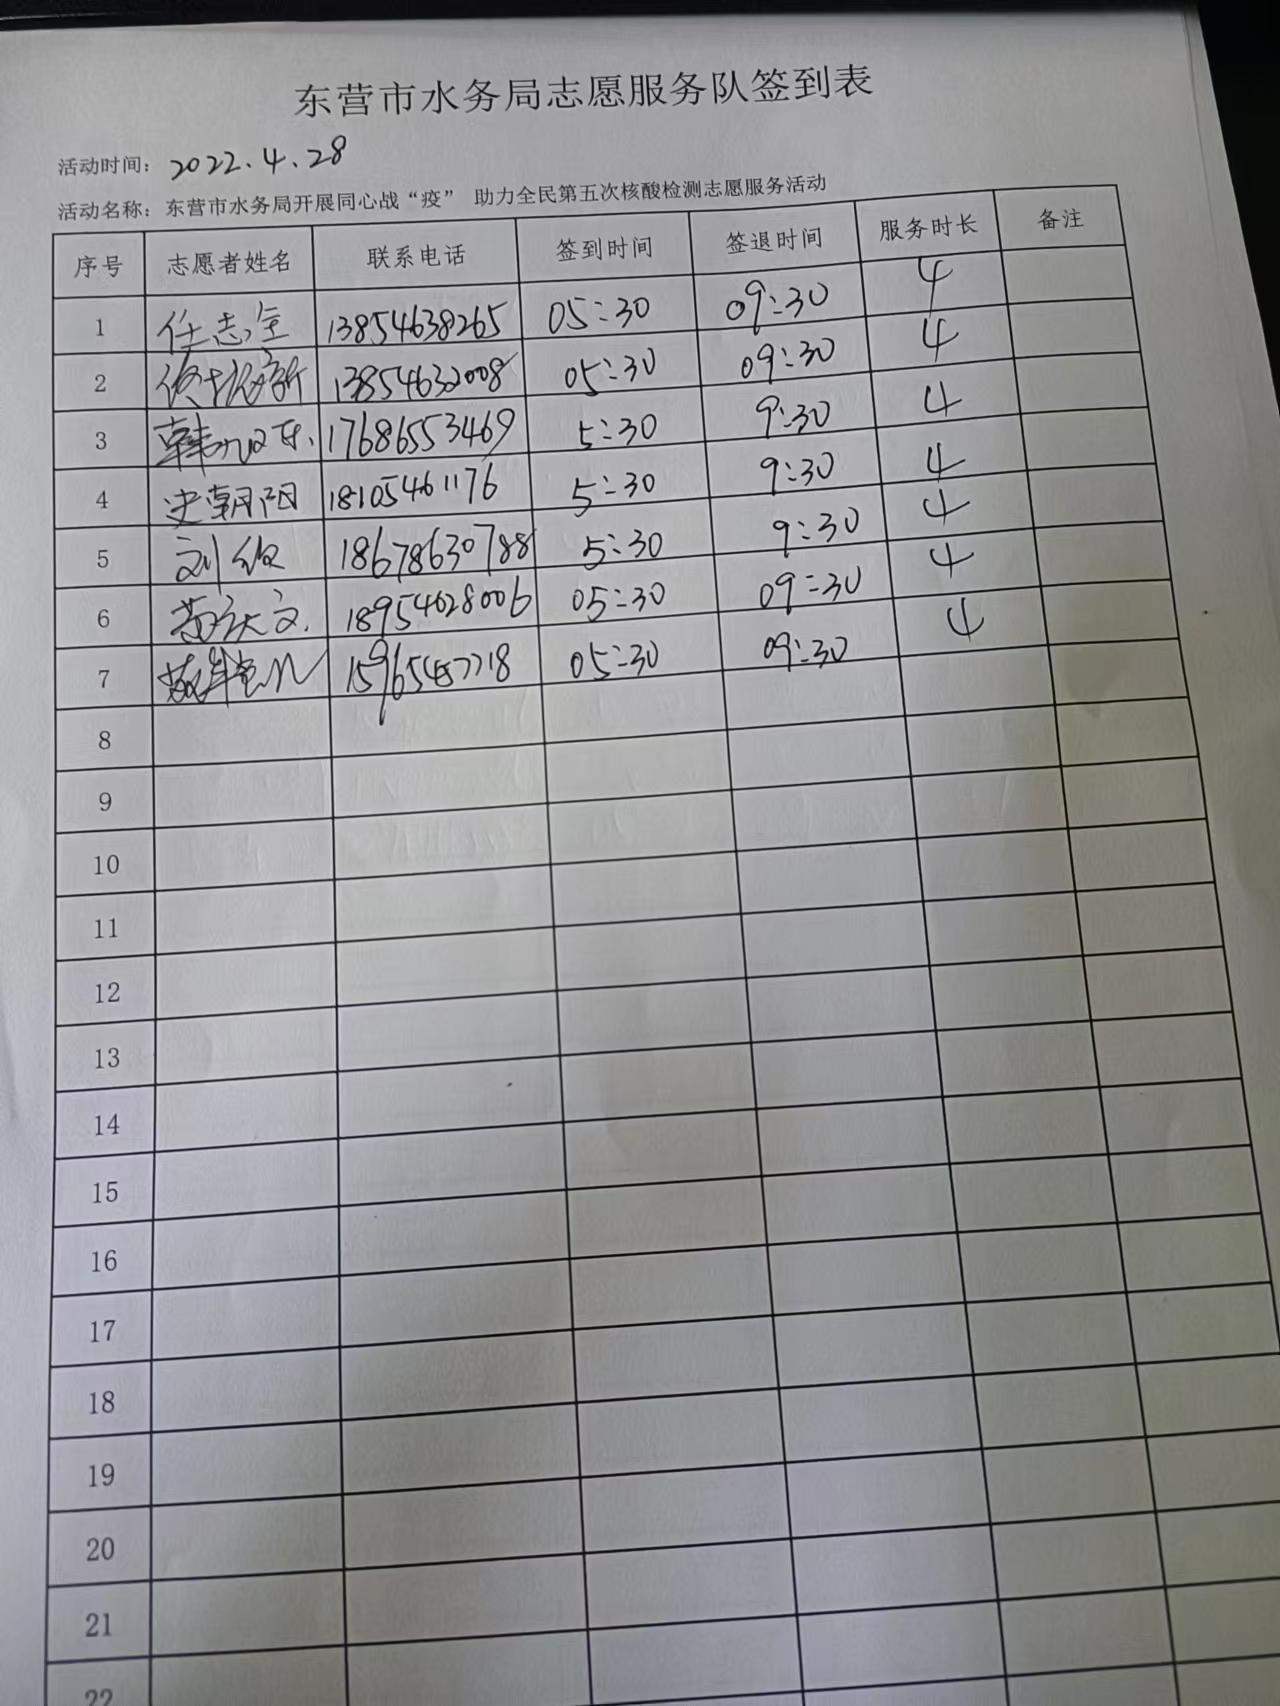 东营市水务局志愿服务队签到表
活动时间：2022.4.28
活动名称：东营市水务局开展同心战“疫” 助力全民第五次核酸检测志愿服务活动
序号 志愿者姓名 联系电话 签到时间 签退时间 服务时长 备注
1 任志宝 13854638265 05:30 09:30 4
2 13854632008 05:30 09:30 4
3 韩 17686553469 5:30 9:30 4
4 史朝阳 18105461176 5:30 9:30 4
5 刘 18678630788 5:30 9:30 4
6 18954628006 05:30 09:30 4
7 05:30 09:30 4
8
9
10
11
12
13
14
15
16
17
18
19
20
21
22